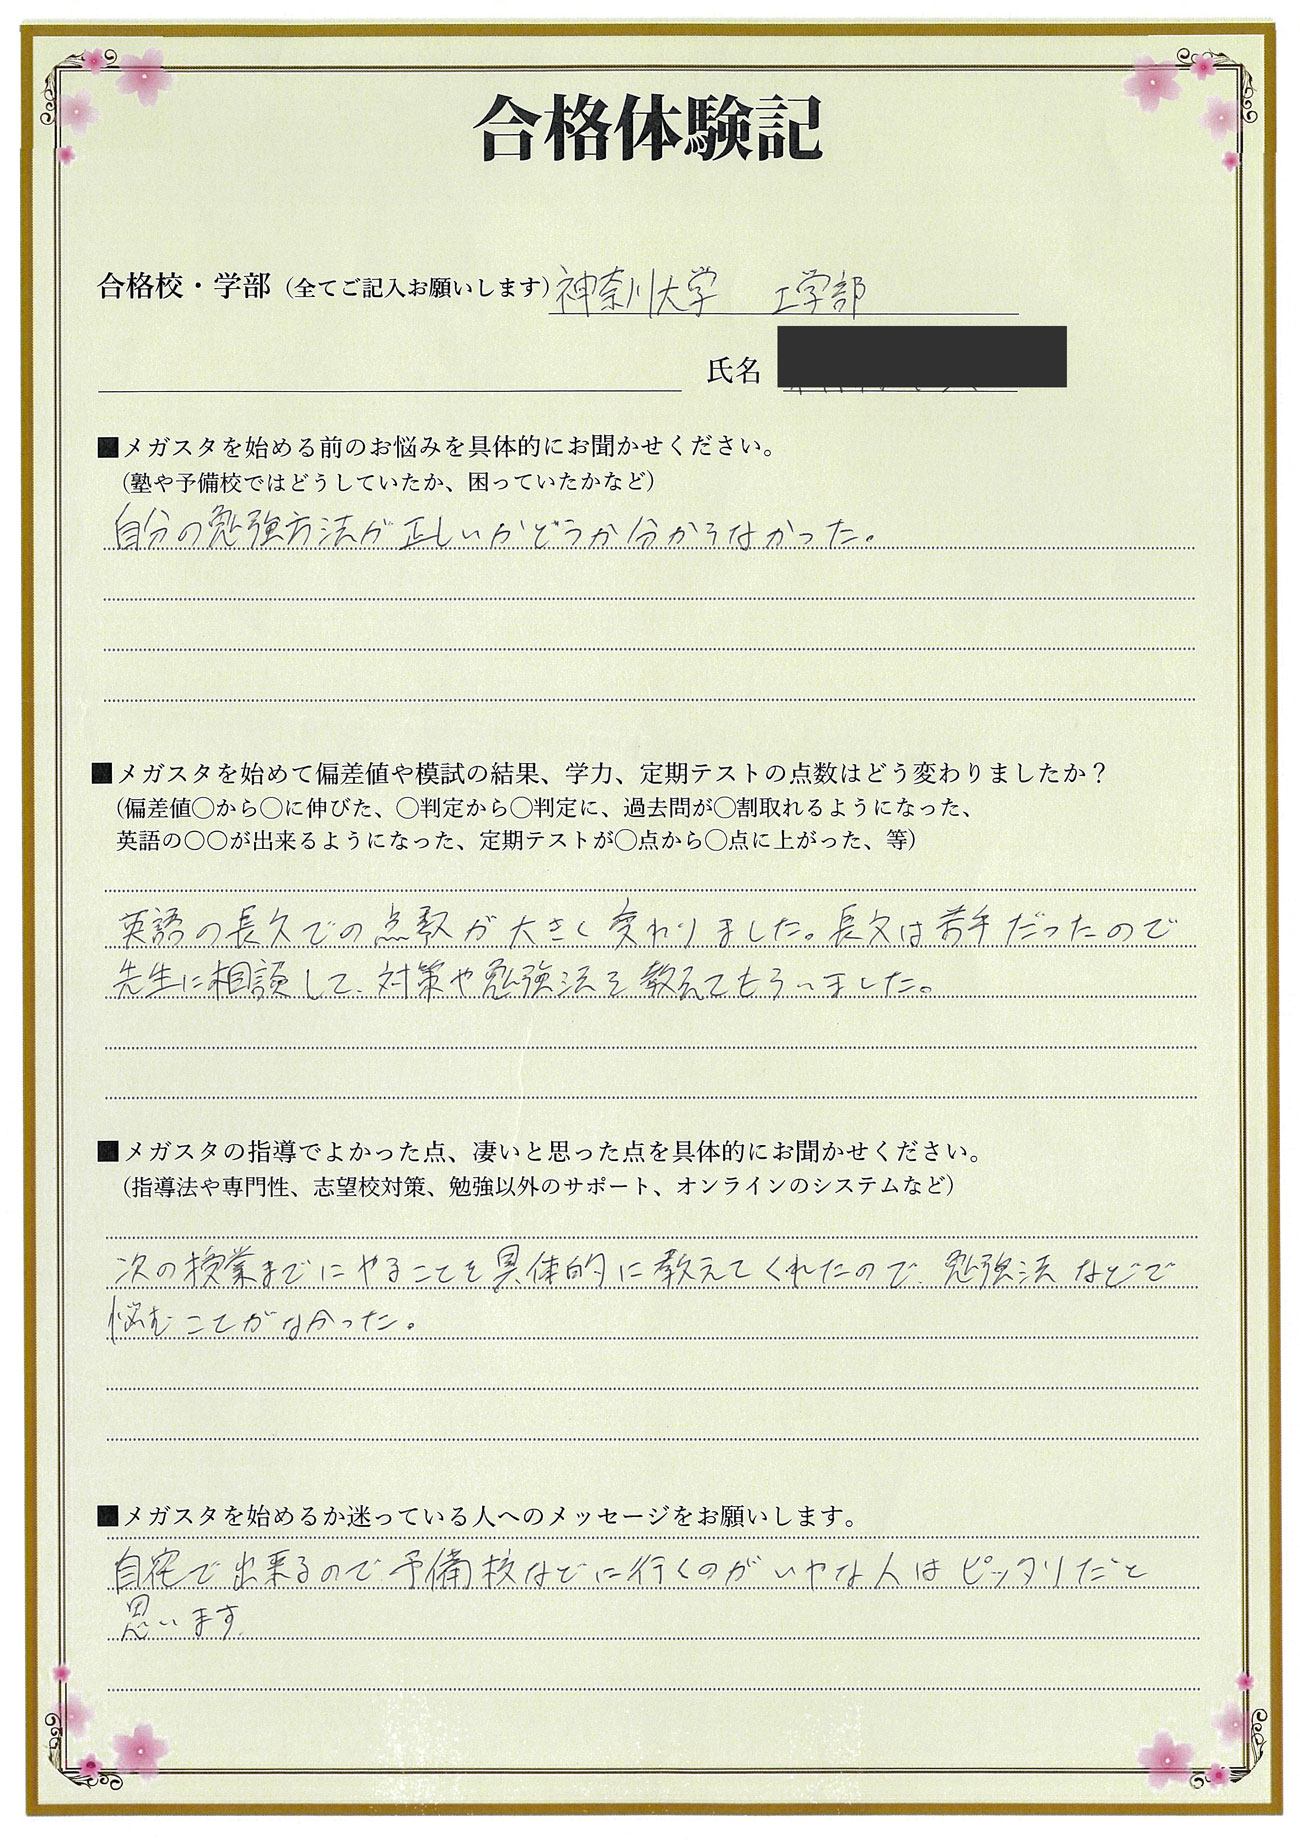 合格体験記
合格校・学部（全てご記入お願いします）神奈川大学 工学部
氏名
■メガスタを始める前のお悩みを具体的にお聞かせください。
（塾や予備校ではどうしていたか、困っていたかなど）
自分の勉強方法が正しいかどうか分からなかった。
■メガスタを始めて偏差値や模試の結果、学力、定期テストの点数はどう変わりましたか？
（偏差値〇から〇に伸びた、〇判定から〇判定に、過去問が〇割取れるようになった、
英語の〇〇が出来るようになった、定期テストが〇点から〇点に上がった、等）
英語の長文での点数が大きく変わりました。長文は苦手だったので
先生に相談して、対策や勉強法を教えてもらいました。
■メガスタの指導でよかった点、凄いと思った点を具体的にお聞かせください。
（指導法や専門性、志望校対策、勉強以外のサポート、オンラインのシステムなど）
次の授業までにやることを具体的に教えてくれたので、勉強法などで
悩むことがなかった。
■メガスタを始めるか迷っている人へのメッセージをお願いします。
自宅で出来るので予備校などに行くのがいやな人はピッタリだと
思います。